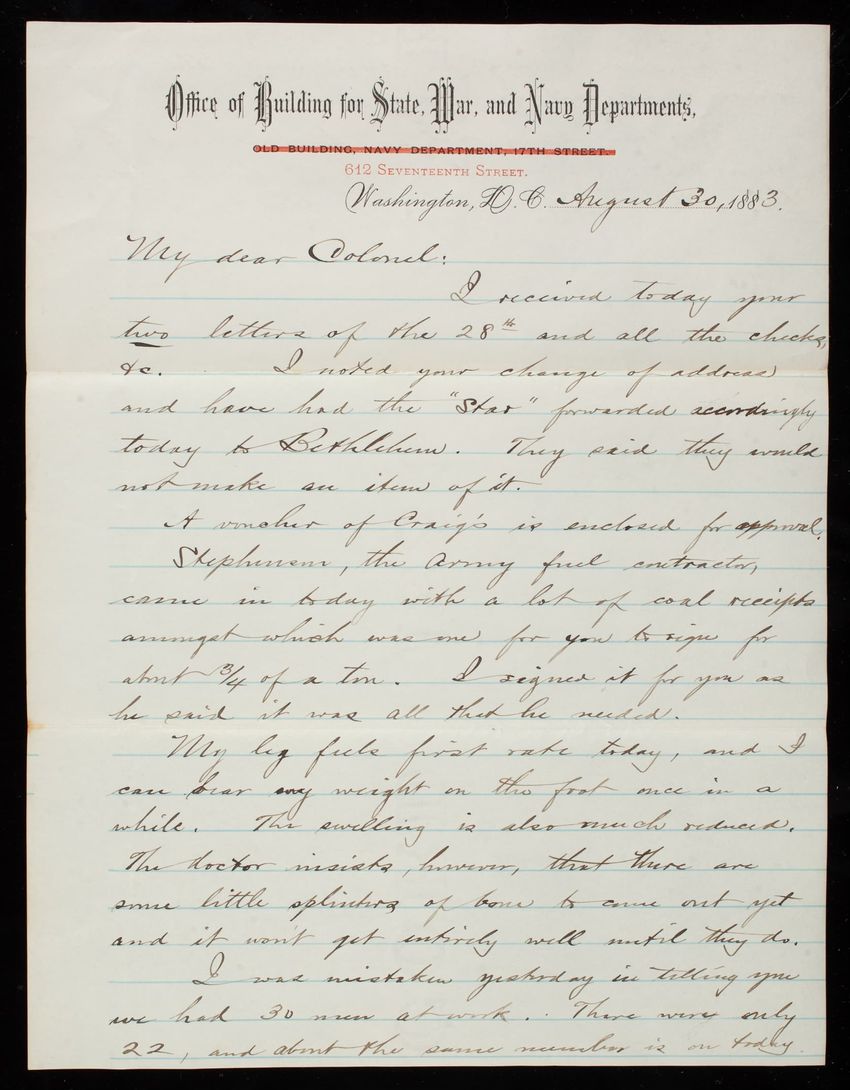 Office of Building for State, War, and Navy Departments,
OLD BUILDING, NAVY DEPARTMENT, 17TH STREET.
612 SEVENTEENTH STREET.
Washington, D.C. August 30, 1883.
My dear Colonel:
I received today your
two letters of the 28th and all the checks,
&c. I noted your change of address
and have had the "Star" forwarded accordingly
today to Bethlehem. They said they would
not make an item of it.
A voucher of Craig's is enclosed for approval.
Stephenson, the Army fuel contractor,
came in today with a lot of coal receipts
amongst which was one for you to sign for
about 3/4 of a ton. I signed it for you as
he said it was all that he needed.
My leg feels first rate today, and I
can bear my weight on the foot once in a
while. The swelling is also much reduced.
The doctor insists, however, that there are
some little splinters of bone to come out yet
and it won't get entirely well until they do.
I was mistaken yesterday in telling you
we had 30 men at work. There were only
22, and about the same number is on today.